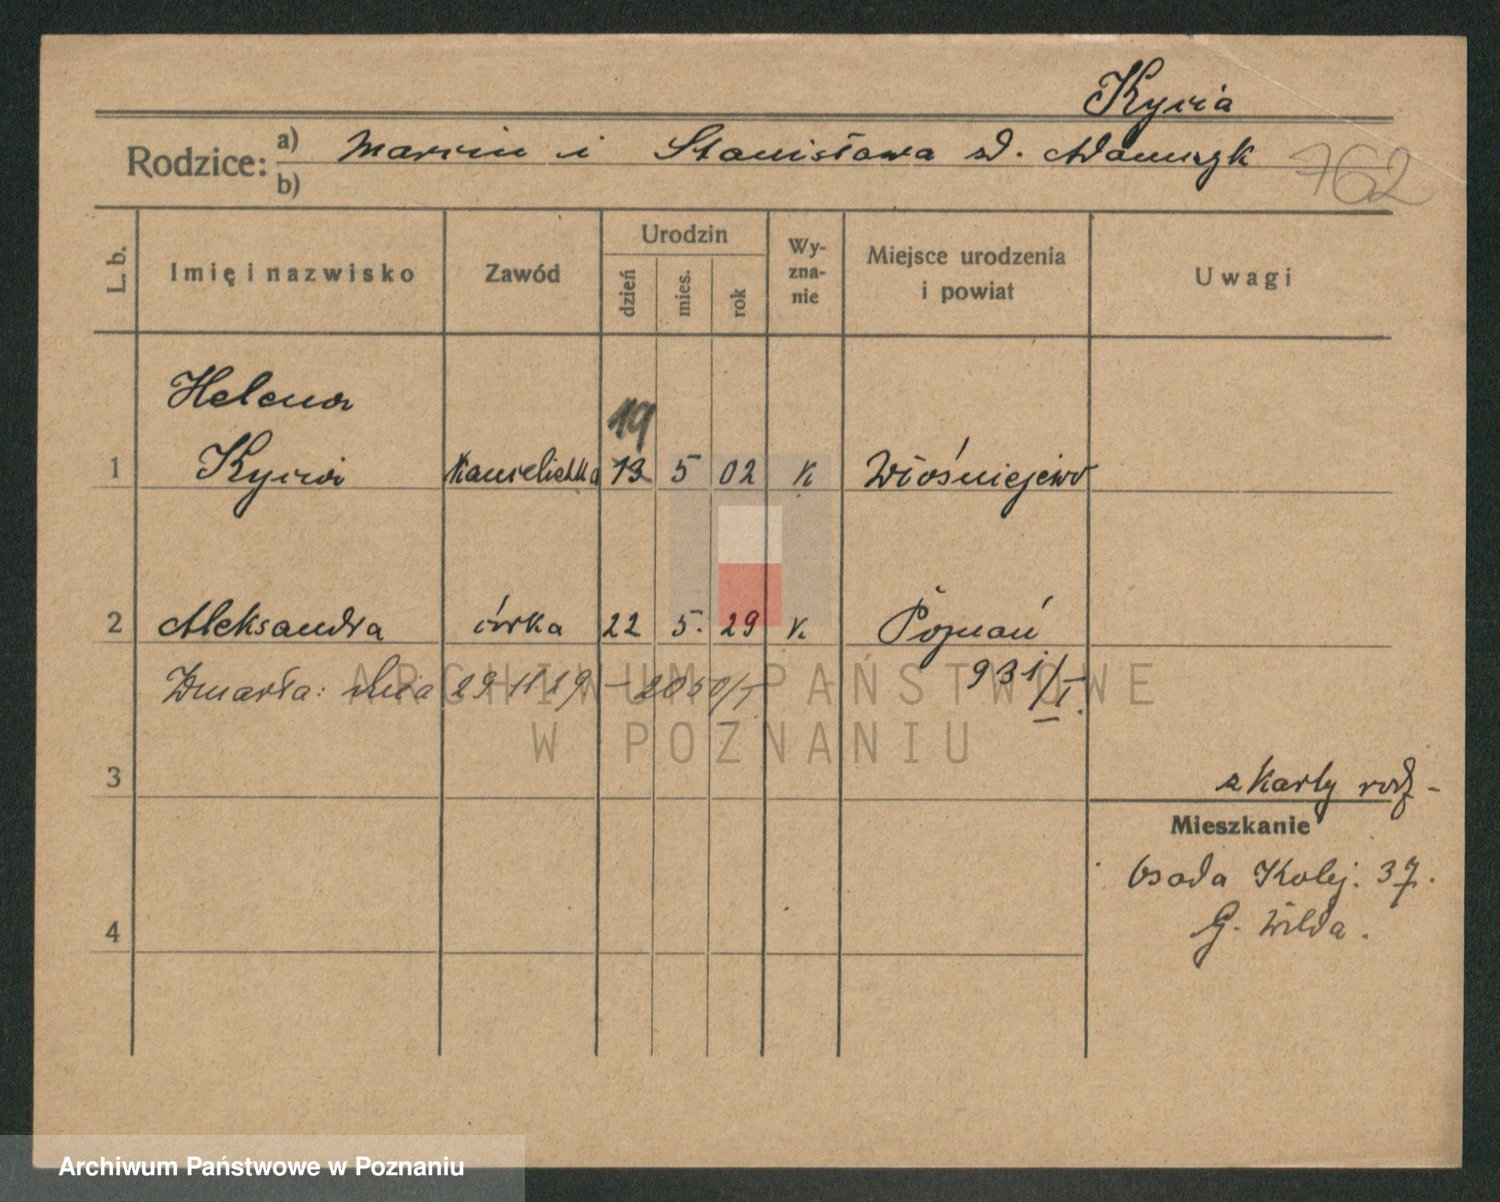 Kycia
Rodzice: a) Marcin i Stanisława zd. Adamczyk 762
b)
L. b. Imię i nazwisko Zawód Urodzin dzień mies. rok Wyzna-nie Miejsce urodzenia i powiat Uwagi
Helena
19
1 Kycia 13 5 02 K Włośniejewo
2 Aleksandra córka 22 5. 29 K Poznań
Zmarła: dnia 29 11 29 – 2050/I 931/I.
3 z karty rodz-
Mieszkanie
Osada Kolej. 37.
4 G. Wilda.
ARCHIWUM PAŃSTWOWE
W POZNANIU
Archiwum Państwowe w Poznaniu